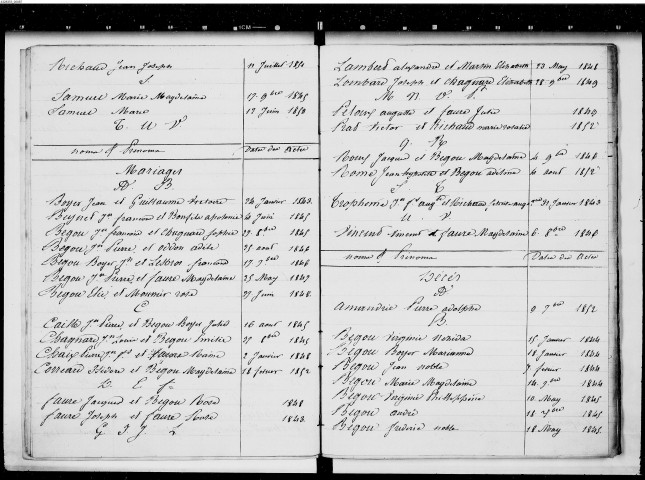 Richaud Jean Joseph 11 Juillet 1851
S
Samuel Marie Magdelaine 17 9bre 1845
Samuel Marie 12 Juin 1850
T. U V
noms & Prenoms Date des Actes
Mariages
A B
Boyer Jean et Guillaume Victoire 24 Janvier 1843
Begou Jn francois et Chagnard Sophie 27 8bre 1845
Begou Jn Pierre et adèle 25 aout 1846
Begou Boyer Jn et francois 17 7bre 1846
Begou Jn Pierre et faure Magdelaine 25 May 1847
Begou Elie et Meunier rose 27 Juin 1848
C
Caille Jn Pierre et Begou Boyer Julie 16 aout 1845
Chagnard Jn Louis et Begou Emilie 27 8bre 1845
Chaix Pierre Jn Ps et faure Marie 2 fevrier 1848
Correard Isidore et Begou Magdelaine 18 fevrier 1852
D E F
faure Jacques et Begou Rose 1848
faure Joseph et faure Rose 1843
G I J L
Lambert alexandre et Martin Elisabeth 23 May 1848
Lombard Joseph et Chagnard Elisabeth 28 9bre 1849
M N O P
Peloux auguste et faure Julie 1849
Rab Victor et Richaud marie rosalie 1852
Q R
Roux Jacques et Begou Magdelaine 4 9bre 1846
Rome Jean hypolite et Begou adeline 4 aout 1852
S T
Trophème Jn fs augte et Richaud 31 Janvier 1843
U V
Vincent Vincent et faure Magdelaine 6 8bre 1846
noms & Prenoms Date des Actes
Décès
A
Amandrie Pierre adolphe 9 7bre 1852
B
Begou Virginie 15 Janvier 1844
Begou Boyer Marianne 18 Janvier 1844
Begou Jean noble 7 fevrier 1844
Begou Marie Magdelaine 14 9bre 1844
Begou Virginie 10 May 1845
Begou andré 18 1845
Begou frederic noble 18 May 1845
1CM